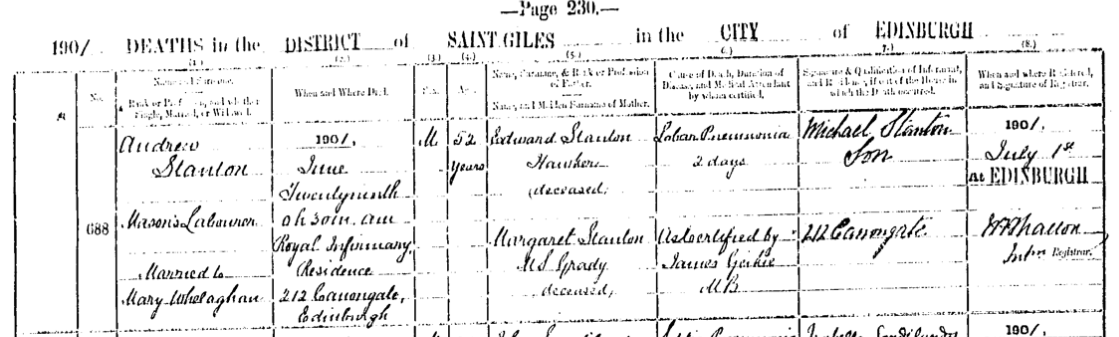 —Page 230.—
1901 DEATHS in the DISTRICT of SAINT GILES in the CITY of EDINBURGH
(1.) (2.) (3.) (4.) (5.) (6.) (7.) (8.)
No.
Name and Surname.
Rank or Profession, and whether
Single, Married, or Widowed.
When and Where Died.
Sex.
Age.
Name, Surname, & Rank or Profession
of Father.
Name, and Maiden Surname of Mother.
Cause of Death, Duration of
Disease, and Medical Attendant
by whom certified.
Signature & Qualification of Informant,
and Residence, if out of the House in
which the Death occurred.
When and where Registered,
and Signature of Registrar.
688
Andrew
Stanton
Mason's Labourer
Married to
Mary Whelaghan
1901,
June
Twentyninth
0h 30m. am
Royal Infirmary,
Residence
212 Canongate,
Edinburgh
M
52
years
Edward Stanton
Hawker
(deceased)
Margaret Stanton
M.S. Grady
(deceased)
Lobar Pneumonia
2 days
As certified by
James Geikie
M.B.
Michael Stanton
Son
212 Canongate
1901,
July 1st
at EDINBURGH
Registrar.
1901,